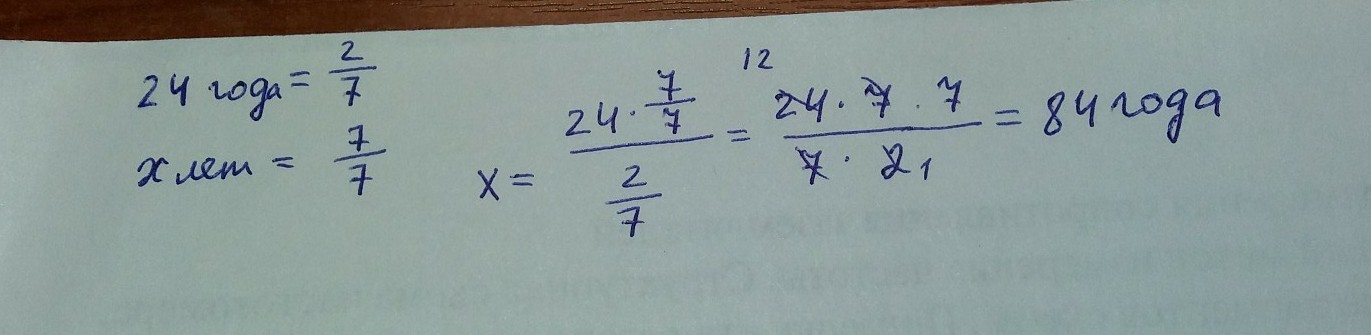 24 года = 2/7
х лет = 7/7
x = (24 · 7/7) / (2/7) = (24 · 7 · 7) / (7 · 2) = 84 года
12
1